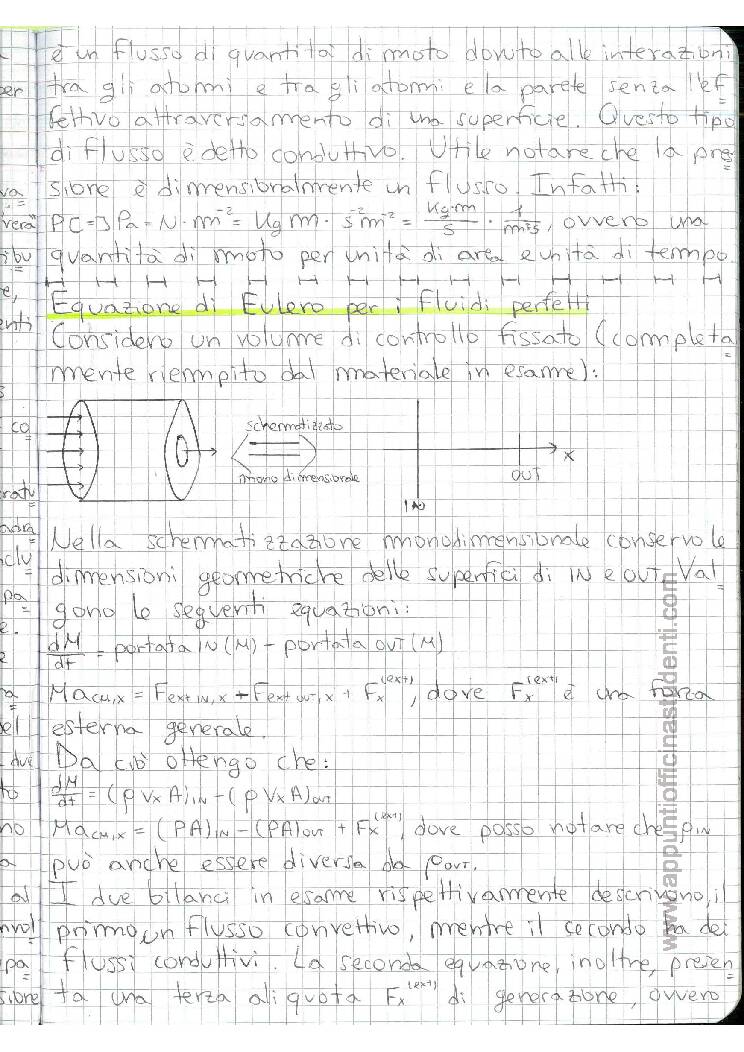 è un flusso di quantità di moto dovuto alle interazioni
tra gli atomi e tra gli atomi e la parete senza l'ef
fettivo attraversamento di una superficie. Questo tipo
di flusso è detto conduttivo. Utile notare che la pres
sione è dimensionalmente un flusso. Infatti:
P[=] Pa = N · m⁻² = Kg m · s⁻² m⁻² = Kg·m/s · 1/m²s, ovvero una
quantità di moto per unità di area e unità di tempo.
Equazione di Eulero per i fluidi perfetti
Considero un volume di controllo fissato (completa
mente riempito dal materiale in esame):
schematizzato
monodimensionale
IN
OUT
x
Nella schematizzazione monodimensionale conservo le
dimensioni geometriche delle superfici di IN e OUT. Val
gono le seguenti equazioni:
dM/dt = portata IN (M) - portata OUT (M)
M a_CM,x = F_ext IN,x + F_ext OUT,x + F_x^(ext), dove F_x^(ext) è una forza
esterna generale.
Da ciò ottengo che:
dM/dt = (ρ V_x A)_IN - (ρ V_x A)_OUT
M a_CM,x = (PA)_IN - (PA)_OUT + F_x^(ext), dove posso notare che ρ_IN
può anche essere diversa da ρ_OUT.
I due bilanci in esame rispettivamente descrivono, il
primo, un flusso convettivo, mentre il secondo ha dei
flussi conduttivi. La seconda equazione, inoltre, presen
ta una terza aliquota F_x^(ext) di generazione, ovvero
www.appuntiofficinastudenti.com